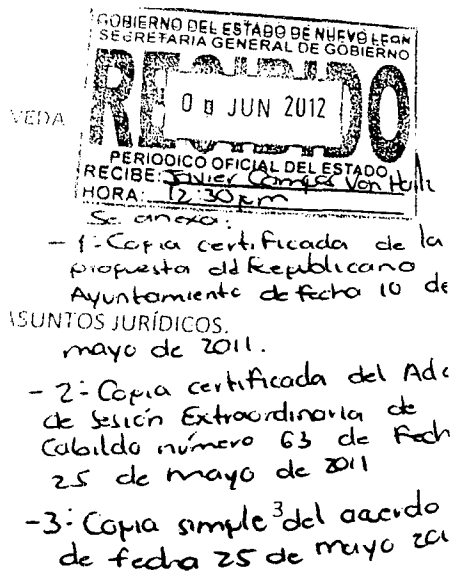 GOBIERNO DEL ESTADO DE NUEVO LEON
SECRETARIA GENERAL DE GOBIERNO
RECIBIDO
JUN 2012
VEDA
PERIODICO OFICIAL DEL ESTADO
RECIBE: Javier Campos Von
HORA: 12:30 pm
Se anexa:
- 1.- Copia certificada de la
propuesta del Republicano
Ayuntamiento de fecha 10 de
ASUNTOS JURÍDICOS.
mayo de 2011.
- 2.- Copia certificada del
de Sesión Extraordinaria de
Cabildo número 63 de Fech
25 de mayo de 2011
- 3.- Copia simple 3 del acuerdo
de fecha 25 de mayo 201